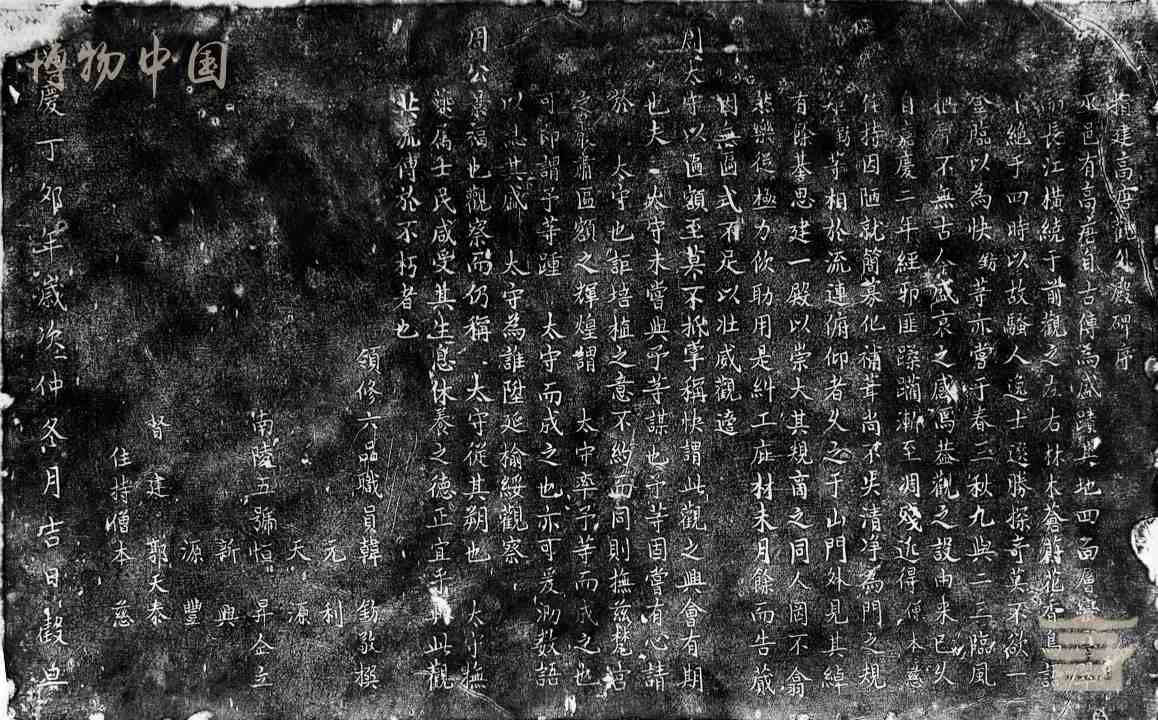 博物中国
建高唐觀外殿碑序
巫邑有高唐自古傳為盛蹟其地四面層
而長江橫繞于前觀之左右林木薈蔚花香鳥語
不絕于四時以故騷人逸士選勝探奇莫不欲一
登臨以為快 等亦嘗于春三秋九與二三臨風
把 不無古今盛衰之感焉蓋觀之設由来已久
自嘉慶二年經邪匪蹂躪漸至凋殘迄得僧本慈
住持因陋就簡募化補葺尚不失清净為門之規
等相於流連俯仰者久之于山門外見其綽
有餘基思建一殿以崇大其規商之同人罔不翕
然樂從極力佽助用是糾工庇材未月餘而告蕆
因無匾式不足以壯威觀適
周太守以匾額至莫不抓掌稱快謂此觀之興會有期
也夫太守未嘗與予等謀也予等固嘗有心請
於 太守也詎培植之意不約而同則撫茲梵宮
之嚴肅匾額之輝煌謂 太守率予等而成之也
可即謂予等踵 太守而成之也亦可爰泐数語
以志其盛 太守為誰陞延榆綏觀察
周公景福也觀察而仍稱 太守從其朔也 太守撫
夔屬士民咸受其生息休養之德正宜乎與此觀
共流傳於不朽者也
領修六品職員韓 敬撰
元利
天源
南陵五號恒昇仝立
新興
源豐
督建 鄭天泰
住持僧本慈
慶丁夘年歲次仲冬月吉日穀旦